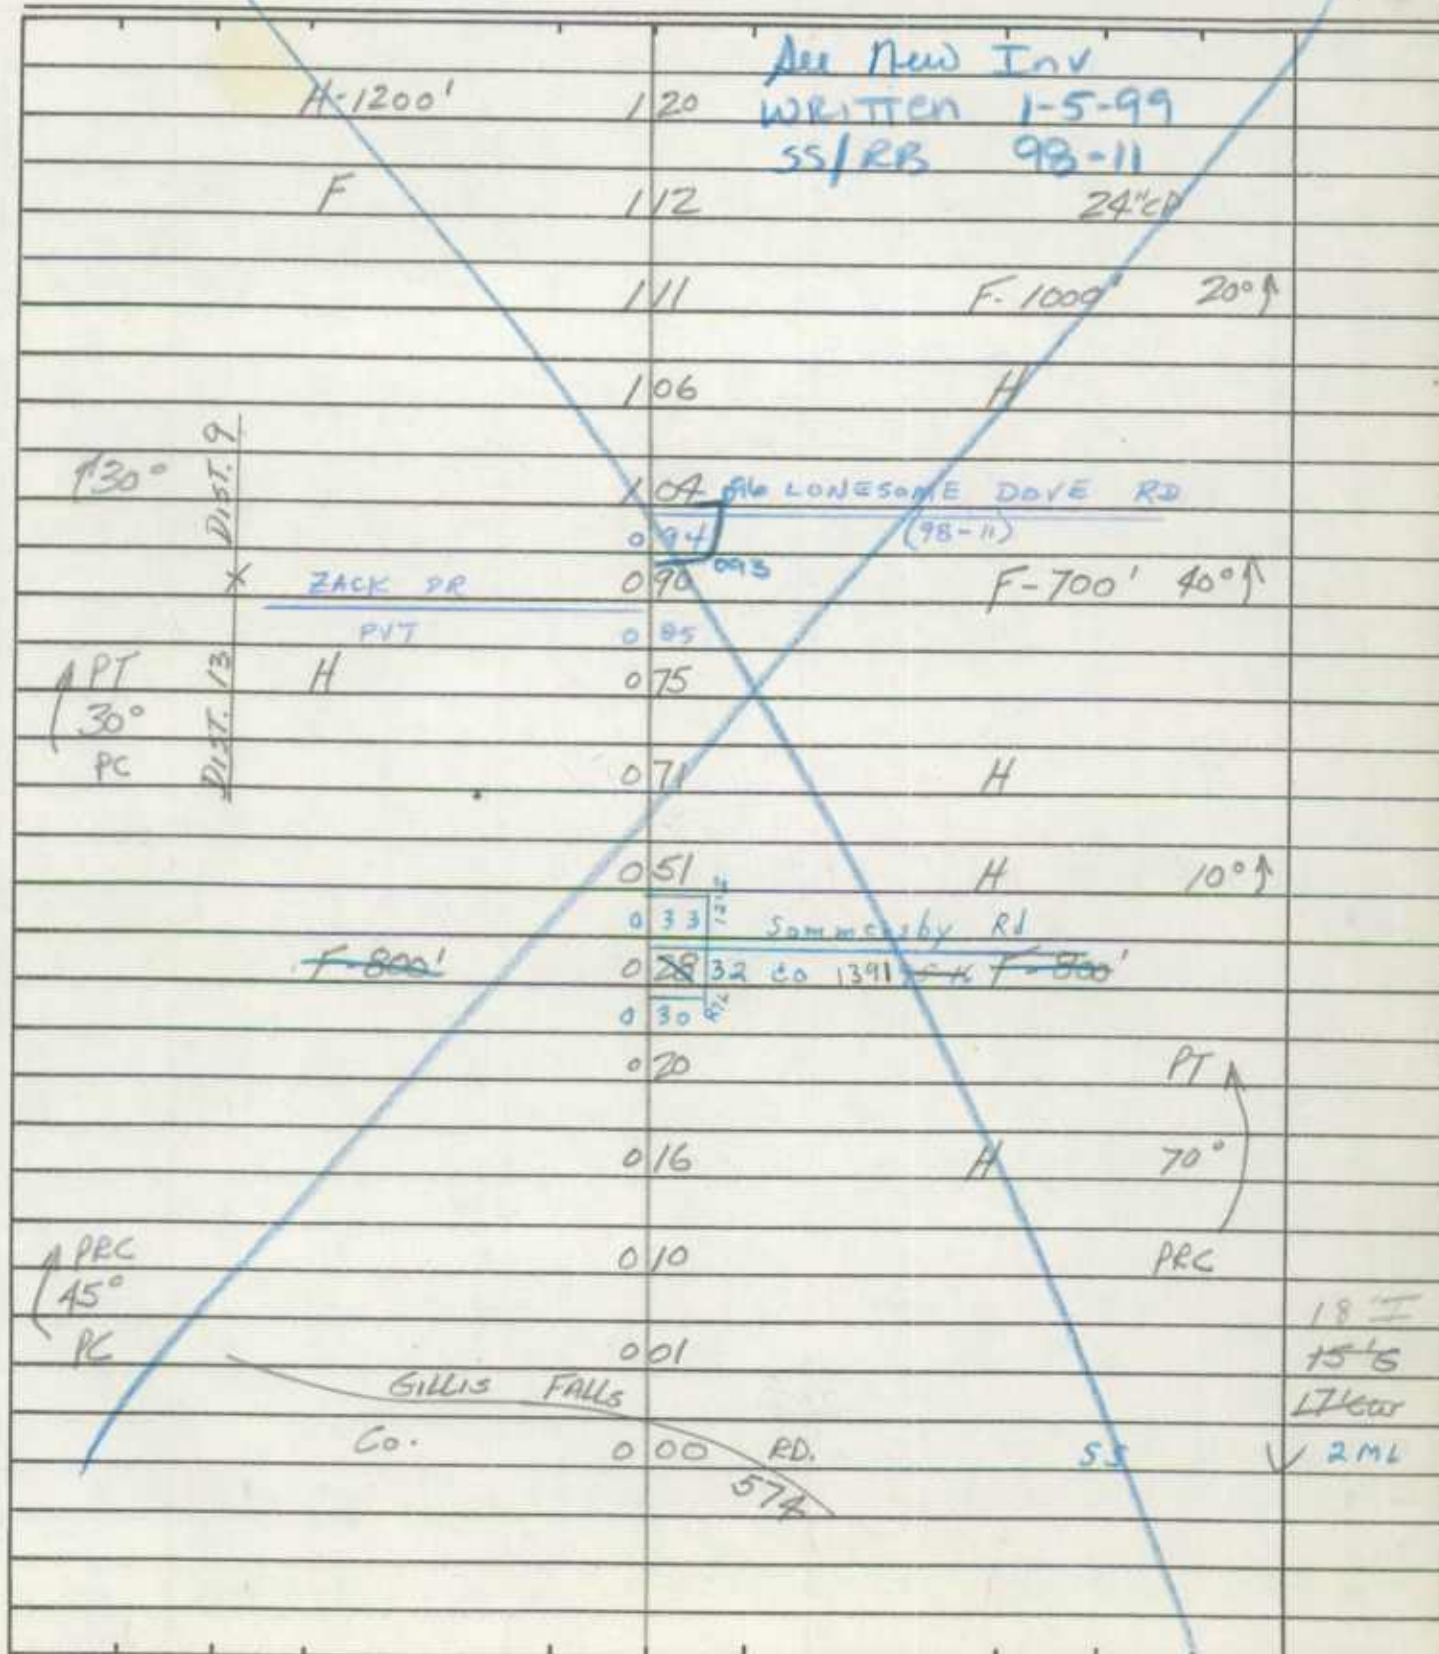 See New Inv
H-1200' 1 20 WRITTEN 1-5-99
SS/RB 98-11
F 1 12 24" CP
1 11 F-1000' 20°
1 06 H
30° DIST. 9 1 04 096 LONESOME DOVE RD
0 94 (98-11)
093
X ZACK DR 0 90 F-700' 40°
PVT 0 85
PT DIST. 13 H 0 75
30°
PC 0 71 H
0 51 H 10°
0 33 Sommersby Rd
F-800' 0 28 32 Co 1391 F-800'
0 30
0 20 PT
0 16 H 70°
PRC 0 10 PRC
45° 18' I
PC 0 01 15' G
GILLIS FALLS 17'
Co. 0 00 RD. SS 2 ML
574